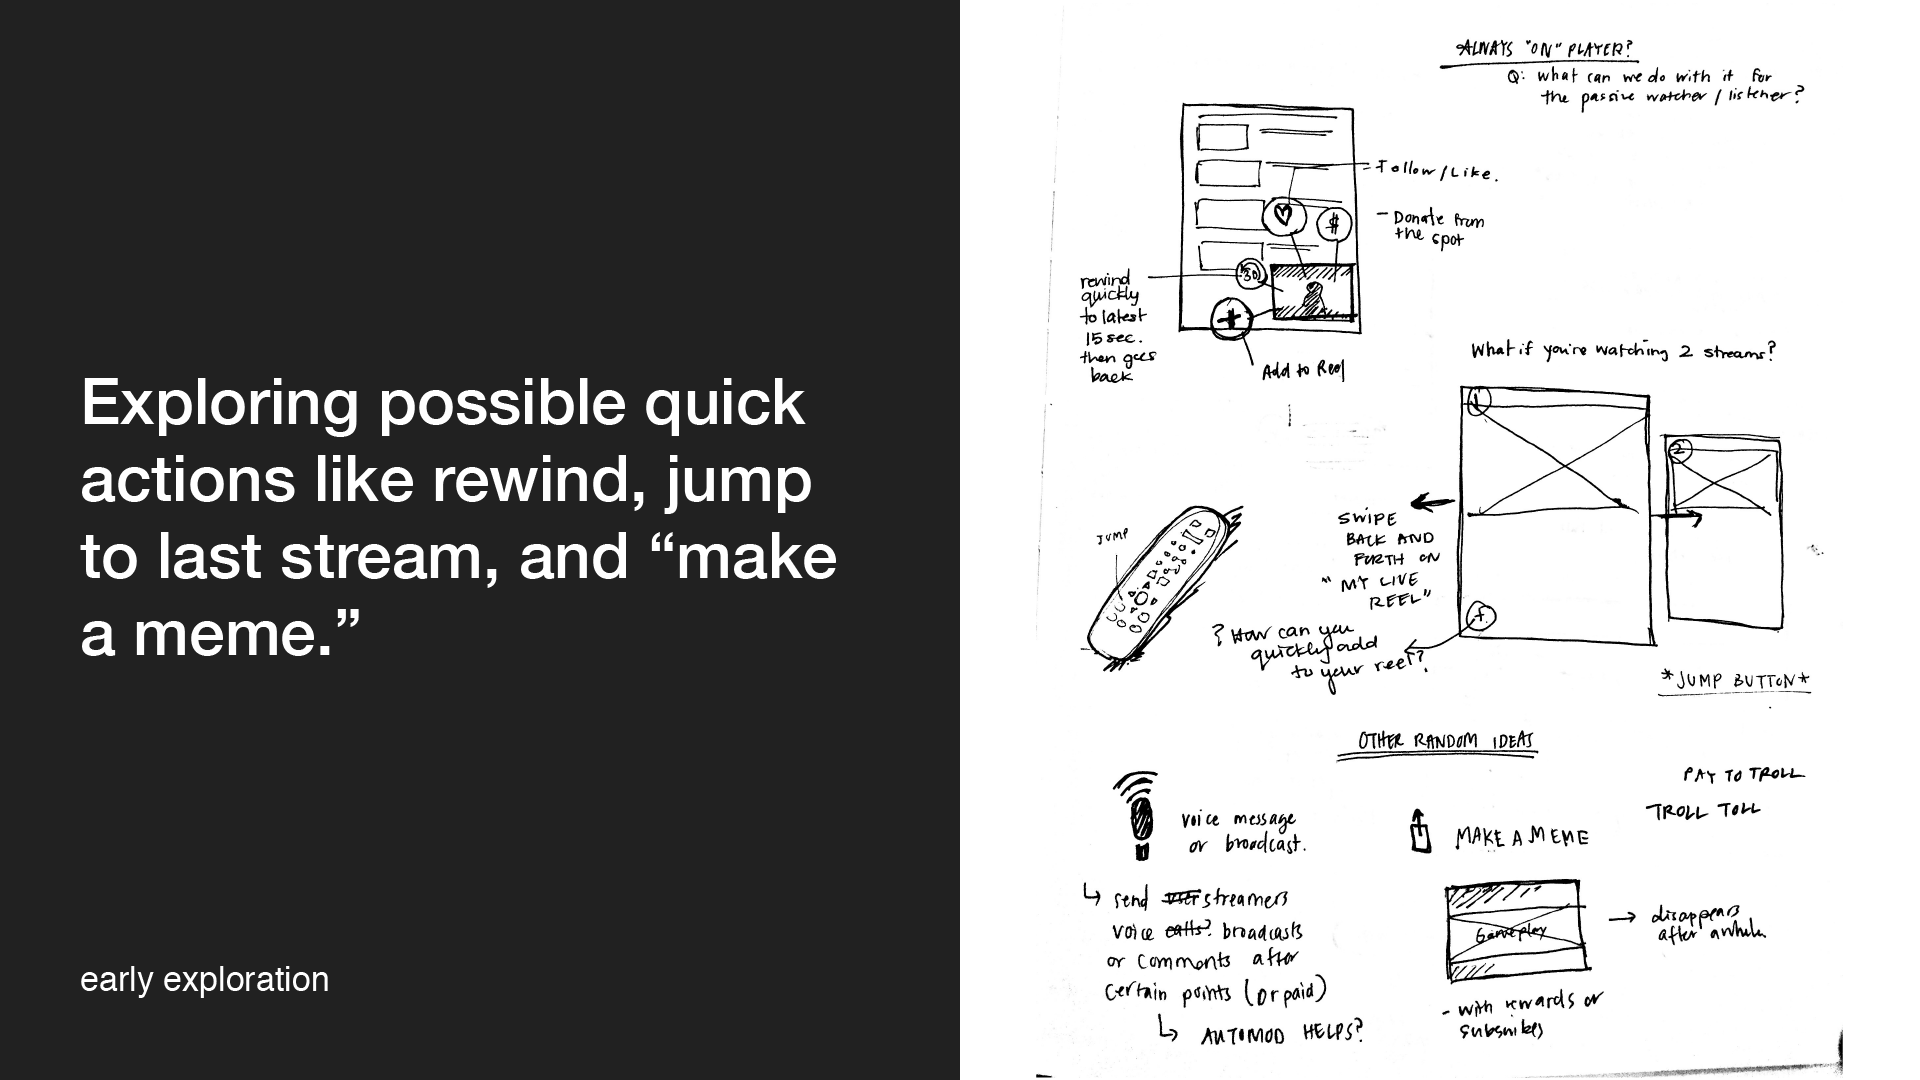 Exploring possible quick
actions like rewind, jump
to last stream, and “make
a meme.”
early exploration
ALWAYS "ON" PLAYER?
Q: what can we do with it for
the passive watcher / listener?
Follow / Like.
- Donate from
the spot
30
$
+
rewind
quickly
to latest
15 sec.
then goes
back
Add to Reel
What if you're watching 2 streams?
1
2
JUMP
SWIPE
BACK AND
FORTH ON
"MY LIVE
REEL"
? How can you
quickly add
to your reel?
*JUMP BUTTON*
OTHER RANDOM IDEAS
PAY TO TROLL
TROLL TOLL
voice message
or broadcast.
MAKE A MEME
↳ send user streamers
voice calls? broadcasts
or comments after
certain points (or paid)
↳ AUTOMOD HELPS?
Gameplay
→ disappears
after awhile
- with rewards or
subscribes